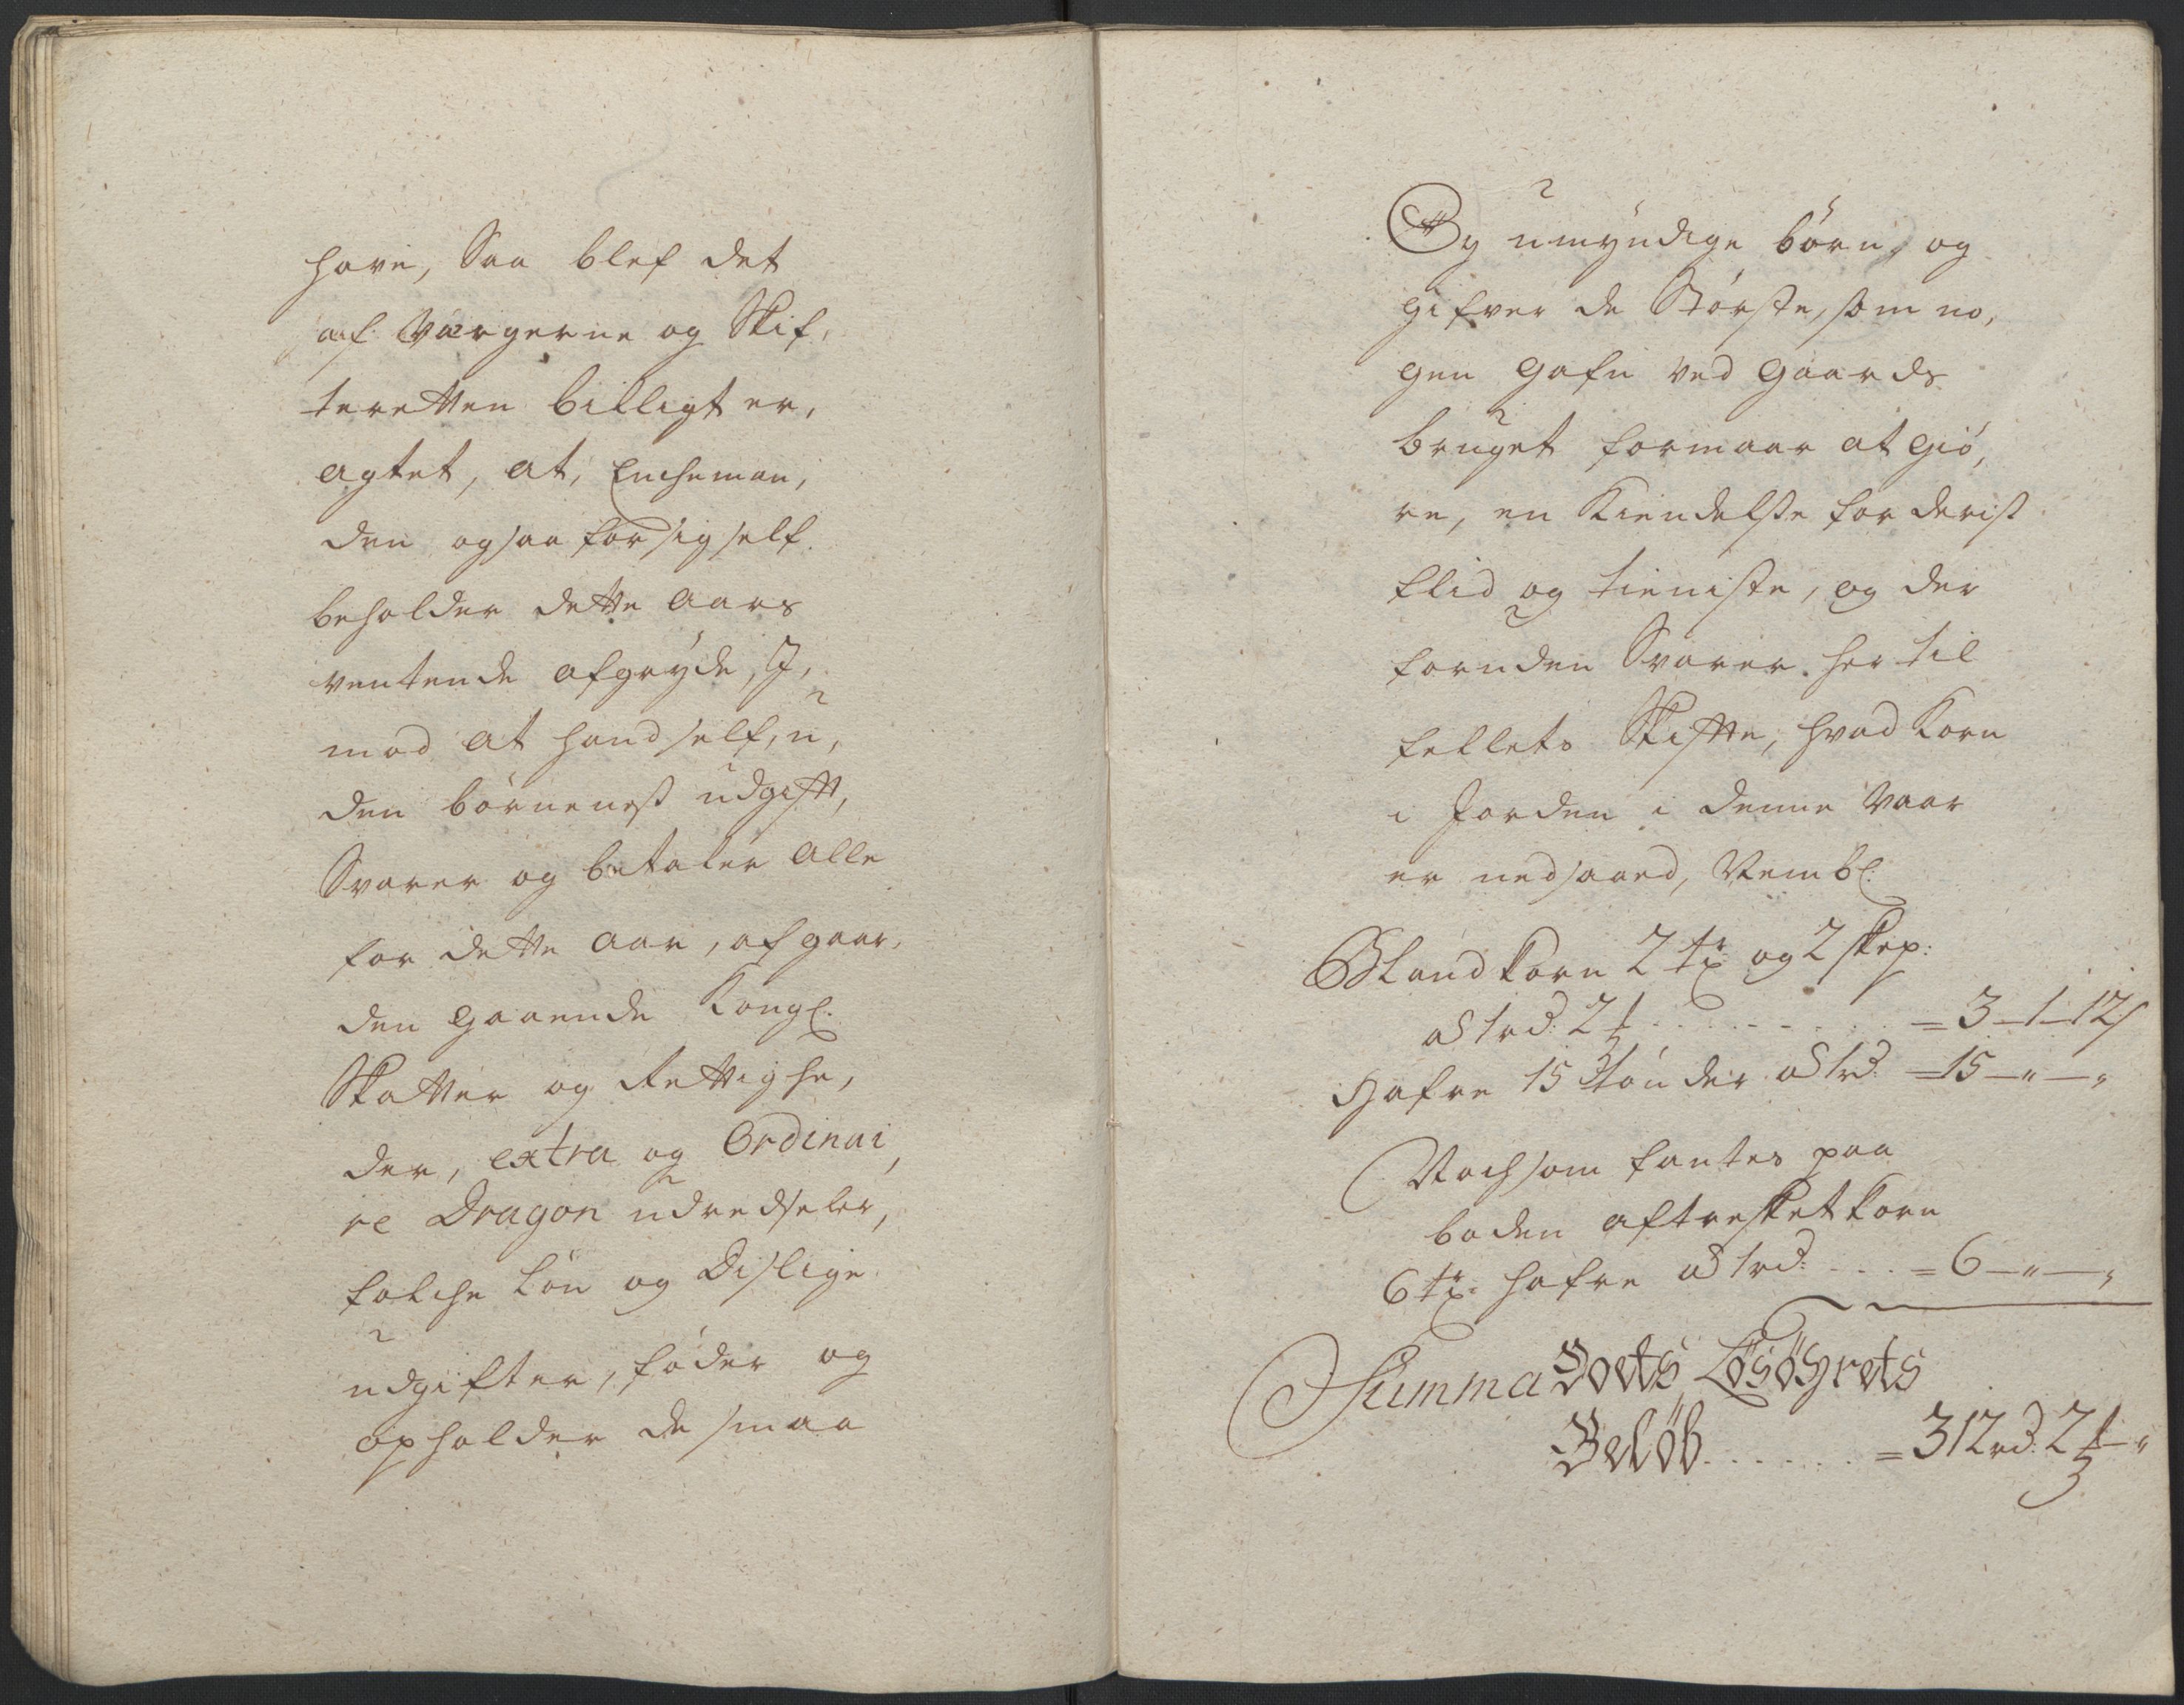 have, Saa blef det
af Værgerne og Skif,
teretten billigt er,
agtet, at, Encheman,
den ogsaa for sig self
beholder dette aars
ventende afgrøde, J,
mod at hand self, u,
den børnenes udgift,
Svarer og betaler alle
for dette aar, af gaar,
den gaaende Kongl:
Skatter og Rettighe,
der, extra og Ordinai,
re Dragon udredseler,
folche Løn og Dislige
udgifter, føder og
opholder de smaa
Og umyndige børn, og
gifver de Største, som no,
gen gafn ved gaards
bruget formaar at giø,
re, en Kiendelse for derist
flid og tieniste, og der
foruden Svarer her til
fellets Skifte, hvad Korn
i Jorden i denne Vaar
er nedsaaed, Nembl:
Blandkorn 2 tr: og 2 skep:
a 1 rd: 2 ... = 3 - 1 - 12 s
Hafre 15 tønder a 1 rd: = 15 - " - "
Noch som fantes paa
boden aftresket korn
6 tr: hafre a 1 rd: ... = 6 - " - "
Summa Boets Løsøyrets
Beløb ...... = 312 rd: 2 - "